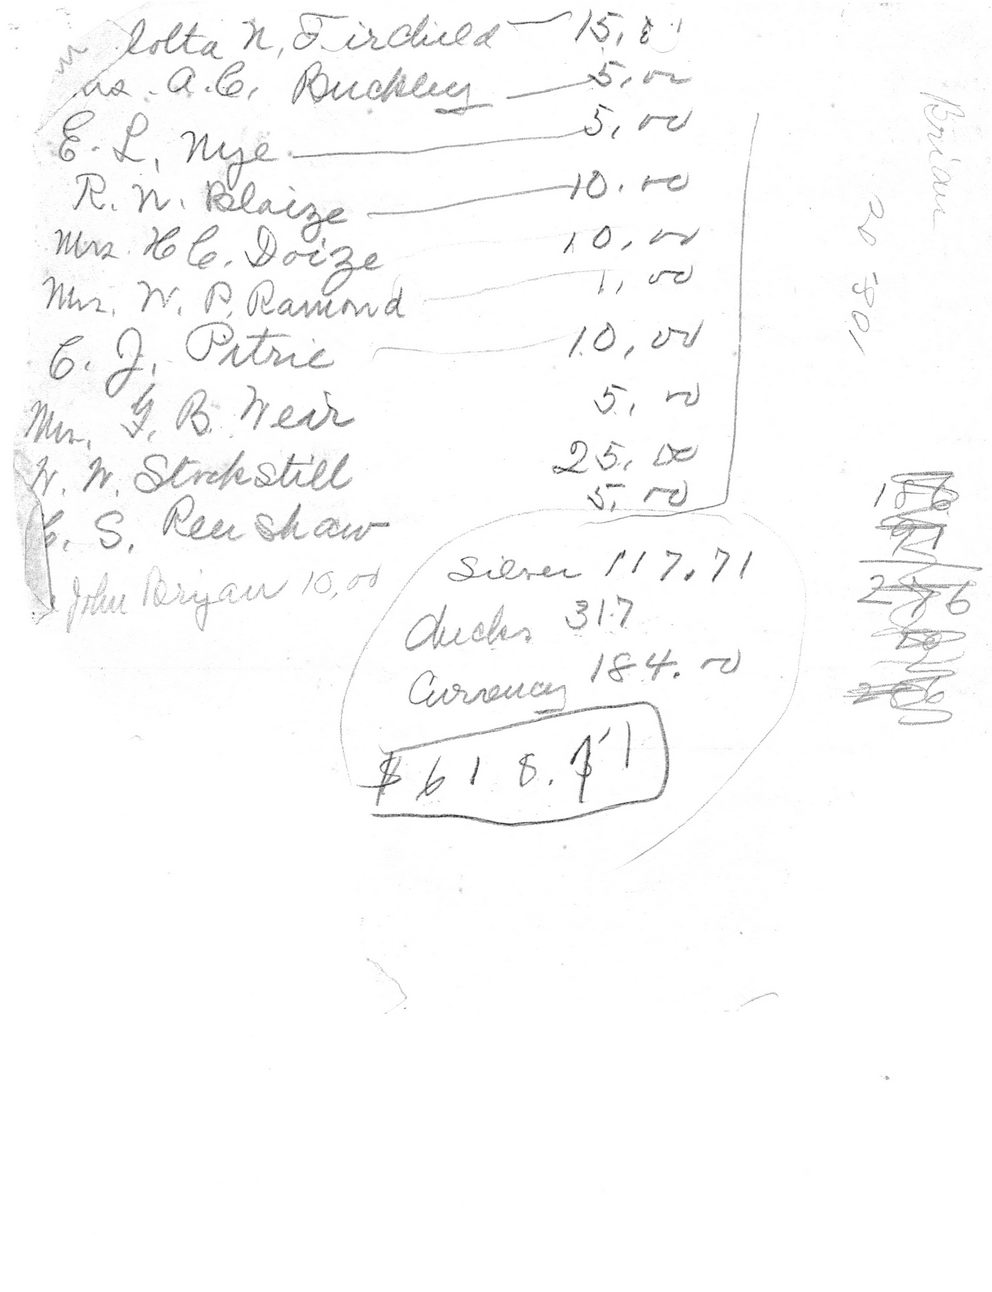 lotta N. Firchild 15.
A.C. Buckley 5.00
E. L. Nye 5.00
R. N. Blaize 10.00
Mrs. H C. Doize 10.00
Mrs. W. P. Ramond 1.00
C. J. Petrie 10.00
Mrs. G. B. Weir 5.00
W. W. Stockstill 25.00
C. S. Renshaw 5.00
John Bryan 10.00
Silver 117.71
Checks 317
Currency 184.00
$618.71
Brian
186